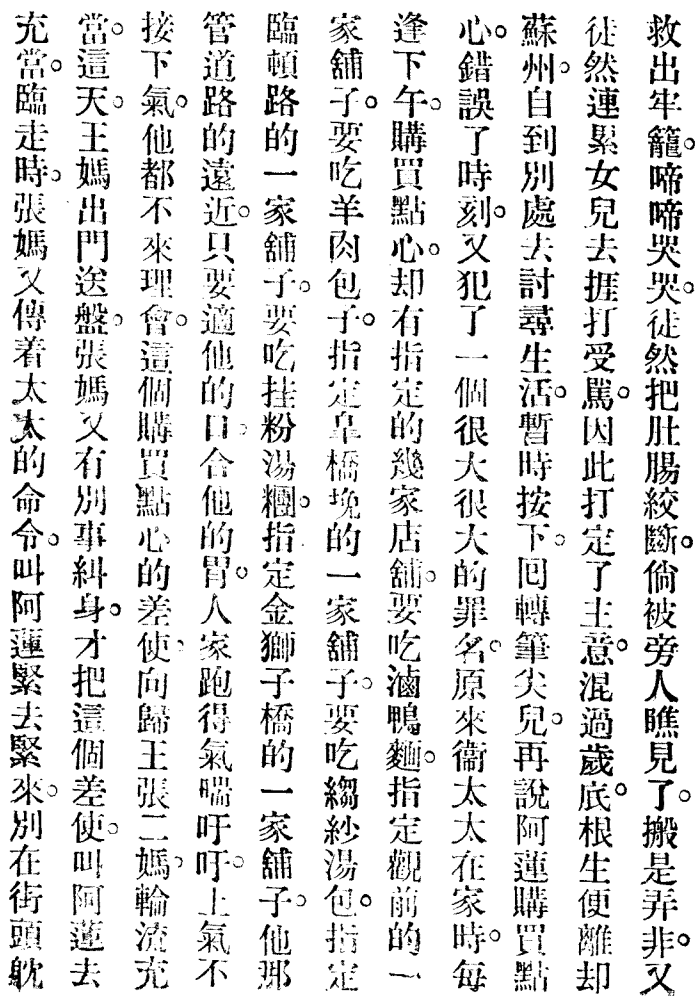 救出牢籠。啼啼哭哭。徒然把肚腸絞斷。倘被旁人瞧見了。搬是弄非。又
徒然連累女兒去捱打受罵。因此打定了主意。混過歲底。根生便離却
蘇州。自到別處去討尋生活。暫時按下。回轉筆尖兒。再說阿蓮購買點
心。錯誤了時刻。又犯了一個很大很大的罪名。原來衞太太在家時。每
逢下午。購買點心。却有指定的幾家店舖。要吃滷鴨麵。指定觀前的一
家舖子。要吃羊肉包子。指定皋橋堍的一家舖子。要吃縐紗湯包。指定
臨頓路的一家舖子。要吃挂粉湯糰。指定金獅子橋的一家舖子。他那
管道路的遠近。只要適他的口。合他的胃。人家跑得氣喘吁吁。上氣不
接下氣。他都不來理會。這個購買點心的差使。向歸王張二媽。輪流充
當。這天。王媽出門送盤。張媽又有別事糾身。才把這個差使。叫阿蓮去
充當。臨走時。張媽又傳着太太的命令。叫阿蓮緊去緊來。別在街頭躭